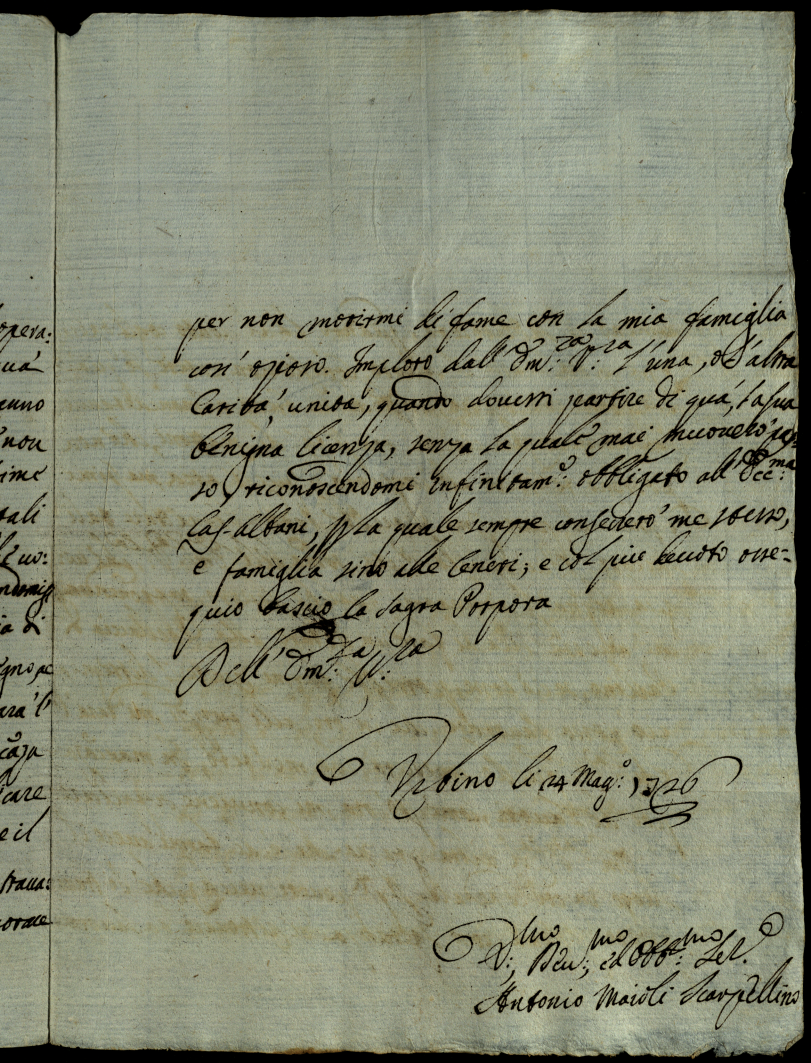 opera:
uà
anno
non
sime
tali
uo:
ia di
gno, ac
arà l'
caja
care
e il
traua:
per non morirmi di fame con la mia famiglia
con' opero. Imploro dall' Em:za V:ra l'una, o l'altra
Carità unita, quando dovessi partire di quà, la sua
benigna licenza, senza la quale mai muoverò pas:
so, riconoscendomi infinitam:e obbligato all' Ecc:ma
Cas: Albani, p la quale sempre consecrerò me stesso,
e famiglia sino alle Ceneri; e col più devoto osse=
quio bascio la Sagra Porpora
Dell' Em:za V:ra
Urbino li 24 Mag:o 1726
D:mo, Deu:mo, ed Obb:mo Ser.e
Antonio Maioli Scarpellino